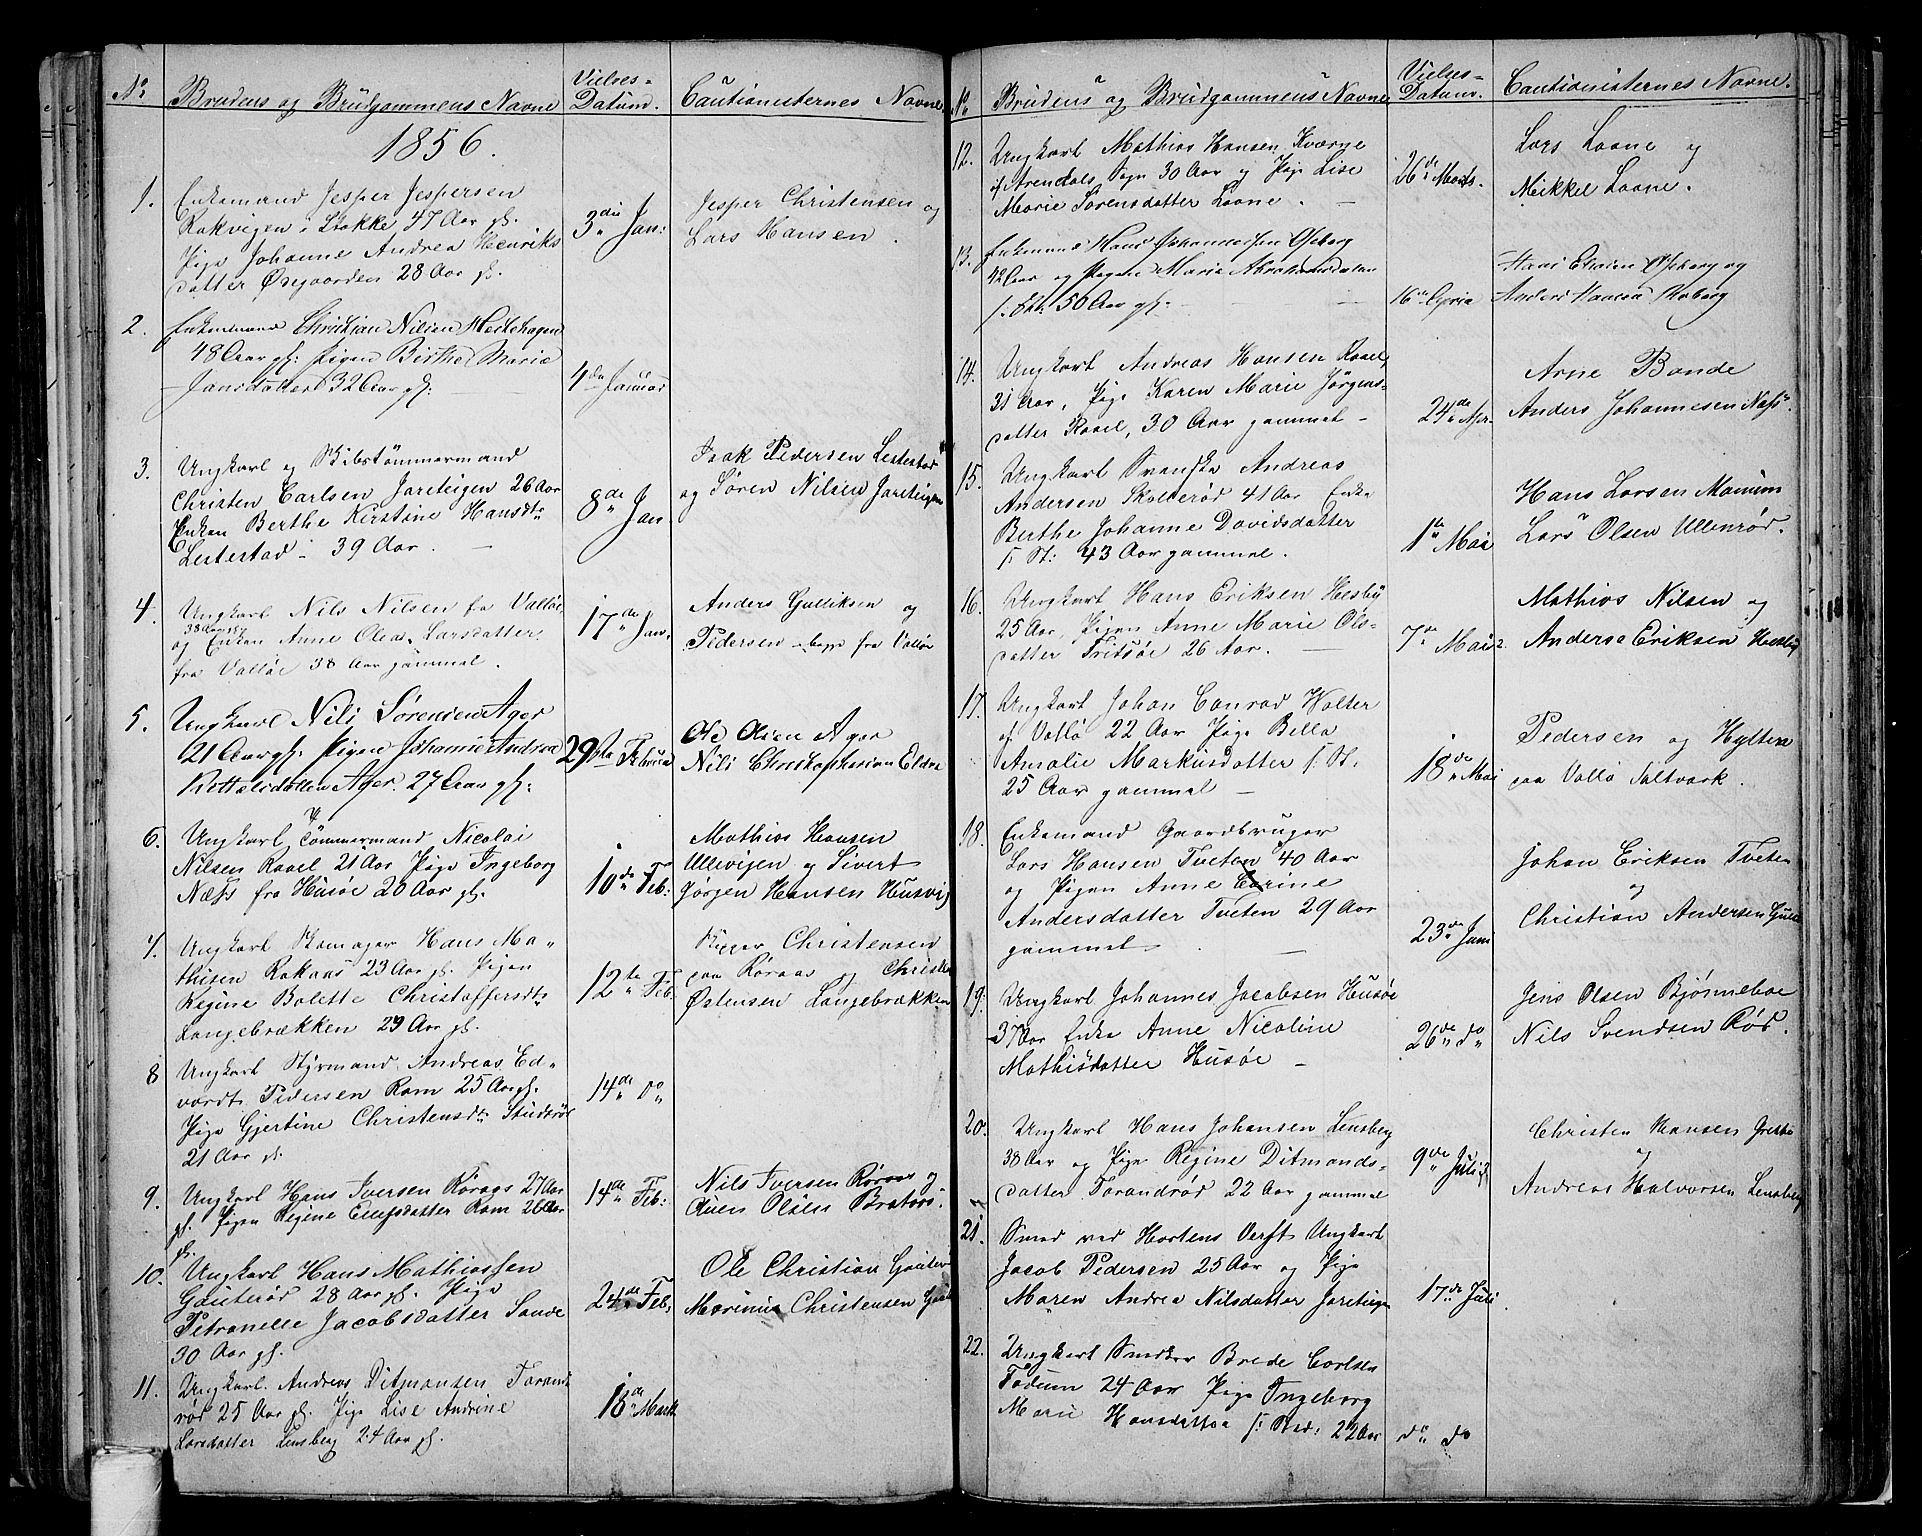 No Brudens og Brudgommens Navne Vielses-Datum. Cautionisternes Navne
1856.
1. Enkemand Jesper Jespersen
Rakvigen i Stokke 47 Aar gl.
Pige Johanne Andrea Henriks
datter Øregaarden 28 Aar gl.
3die Jan:
Jesper Christensen og
Lars Hansen.
2. Enkemand Christian Nilsen
48 Aar gl: Pigen Birthe Marie
Jansdatter 32 Aar gl:
4de Januar
3. Ungkarl og Skibstømmermand
Christen Carlsen Jareteigen 26 Aar
Enken Berthe Kirstine Hansdtr
Lestestad 39 Aar.
8de Jan
Isak Pedersen Lestestad
og Søren Nilsen Jareteigen
4. Ungkarl Nils Nilsen fra Valløe
38 Aar gl
og Enken Anne Olea Larsdatter
fra Valløe 38 Aar gammel.
17de Jan.
Anders Gulliksen og
Pedersen begge fra Valløe
5. Ungkarl Nils Sørensen Ager
21 Aar gl: Pigen Johanne Andrea
Ager. 27 Aar gl:
29de Februar
Ole Olsen Ager
Nils Christophersen
6. Ungkarl Tømmermand Nicolai
Nilsen Raael 21 Aar Pige Ingeborg
Næss fra Husøe 20 Aar gl.
10de Feb:
Mathias Hansen
Ullevigen og Sivert
Jørgen Hansen Husvig
7. Ungkarl Skomager Hans Ma-
thisen Rakaas 23 Aar gl. Pigen
Regine Bolette Christoffersdtr
Langebrækken 29 Aar gl.
12te Feb.
Skipper Christensen
paa Røraas og Christen
Østensen Langebrækken
8 Ungkarl Styrmand Andreas Ed-
vardt Pedersen Ram 25 Aar gl.
Pige Gjertine Christensdtr Studsrød
21 Aar gl.
14de do
9. Ungkarl Hans Iversen Røraas 27 Aar
gl. Pigen Regine Ellefsdatter Ram 26 Aar
gl.
14de Feb:
Nils Iversen Røraas og
Auen Olsen Brataas.
10. Ungkarl Hans Mathiassen
Gauterød 28 Aar gl. Pige
Petronelle Jacobsdatter Sande
30 Aar gl.
24de Feb.
Ole Christian
Marinius Christensen
11. Ungkarl. Andreas Ditmansen Farand
rød 25 Aar gl. Pige Lise Andrine
Larsdatter Lensberg 24 Aar gl.
18de Marts
No Brudens og Brudgommens Navne Vielses-Datum. Cautionisternes Navne.
12. Ungkarl Mathias Hansen Kværne
af Arendals Sogn 30 Aar og Pige Lise
Marie Sørensdatter Laane.
26de Marts.
Lars Laane og
Mikkel Laane.
13. Enkemand Hans Johannessen Oseberg
42 Aar og Pigen Maria Abrahamsdatter
50 Aar gl.
16de April
Oseberg og
Anders Hansen
14. Ungkarl Andreas Hansen Raael,
31 Aar, Pige Karen Marie Jørgens-
datter Raael, 30 Aar gammel
24de Apr.
Arne Bonde
Anders Johannesen Næss.
15. Ungkarl Svenske Andreas
Andersen Skallerød 41 Aar Enke
Berthe Johanne Davidsdatter
f: St: 43 Aar gammel.
1te Mai
Hans Larsen Manum
Lars Olsen Ullenrød.
16. Ungkarl Hans Eriksen Hesby
25 Aar, Pigen Anne Marie Ols-
datter Tritsøe 26 Aar.
7de Mai
Mathias Nilsen og
Anders Eriksen Hesby
17. Ungkarl Johan Conrad Holter
af Vallø 22 Aar Pige Bella
Amalie Markusdatter f: St.
25 Aar gammel
18de Mai
Pedersen og Hylten
paa Vallø Saltværk.
18. Enkemand Gaardbruger
Lars Hansen Tveten 40 Aar
og Pigen Anne Carine
Andersdatter Tveten 29 Aar
gammel
23de Juni
Johan Eriksen Tveten
og
Christian Andersen
19. Ungkarl Johannes Jacobsen Husøe
37 Aar Enke Anne Nicoline
Mathisdatter Husøe
26de do
Jens Olsen Bjørneboe
Nils Svendsen Rød.
20. Ungkarl Hans Johansen Lensberg
38 Aar og Pige Regine Ditmands-
datter Farandrød 22 Aar gammel
9de Juli
Christen Hansen
og
Andreas Halvorsen Lensberg
21. Smed ved Hortens Verft Ungkarl
Jacob Pedersen 25 Aar og Pige
Maren Andrea Nilsdatter Jareteigen
17de Juli
22. Ungkarl Snedker Brede Carlsen
Fodum 24 Aar Pige Ingeborg
Marie Hansdatter f: Sted: 22 Aar
do do